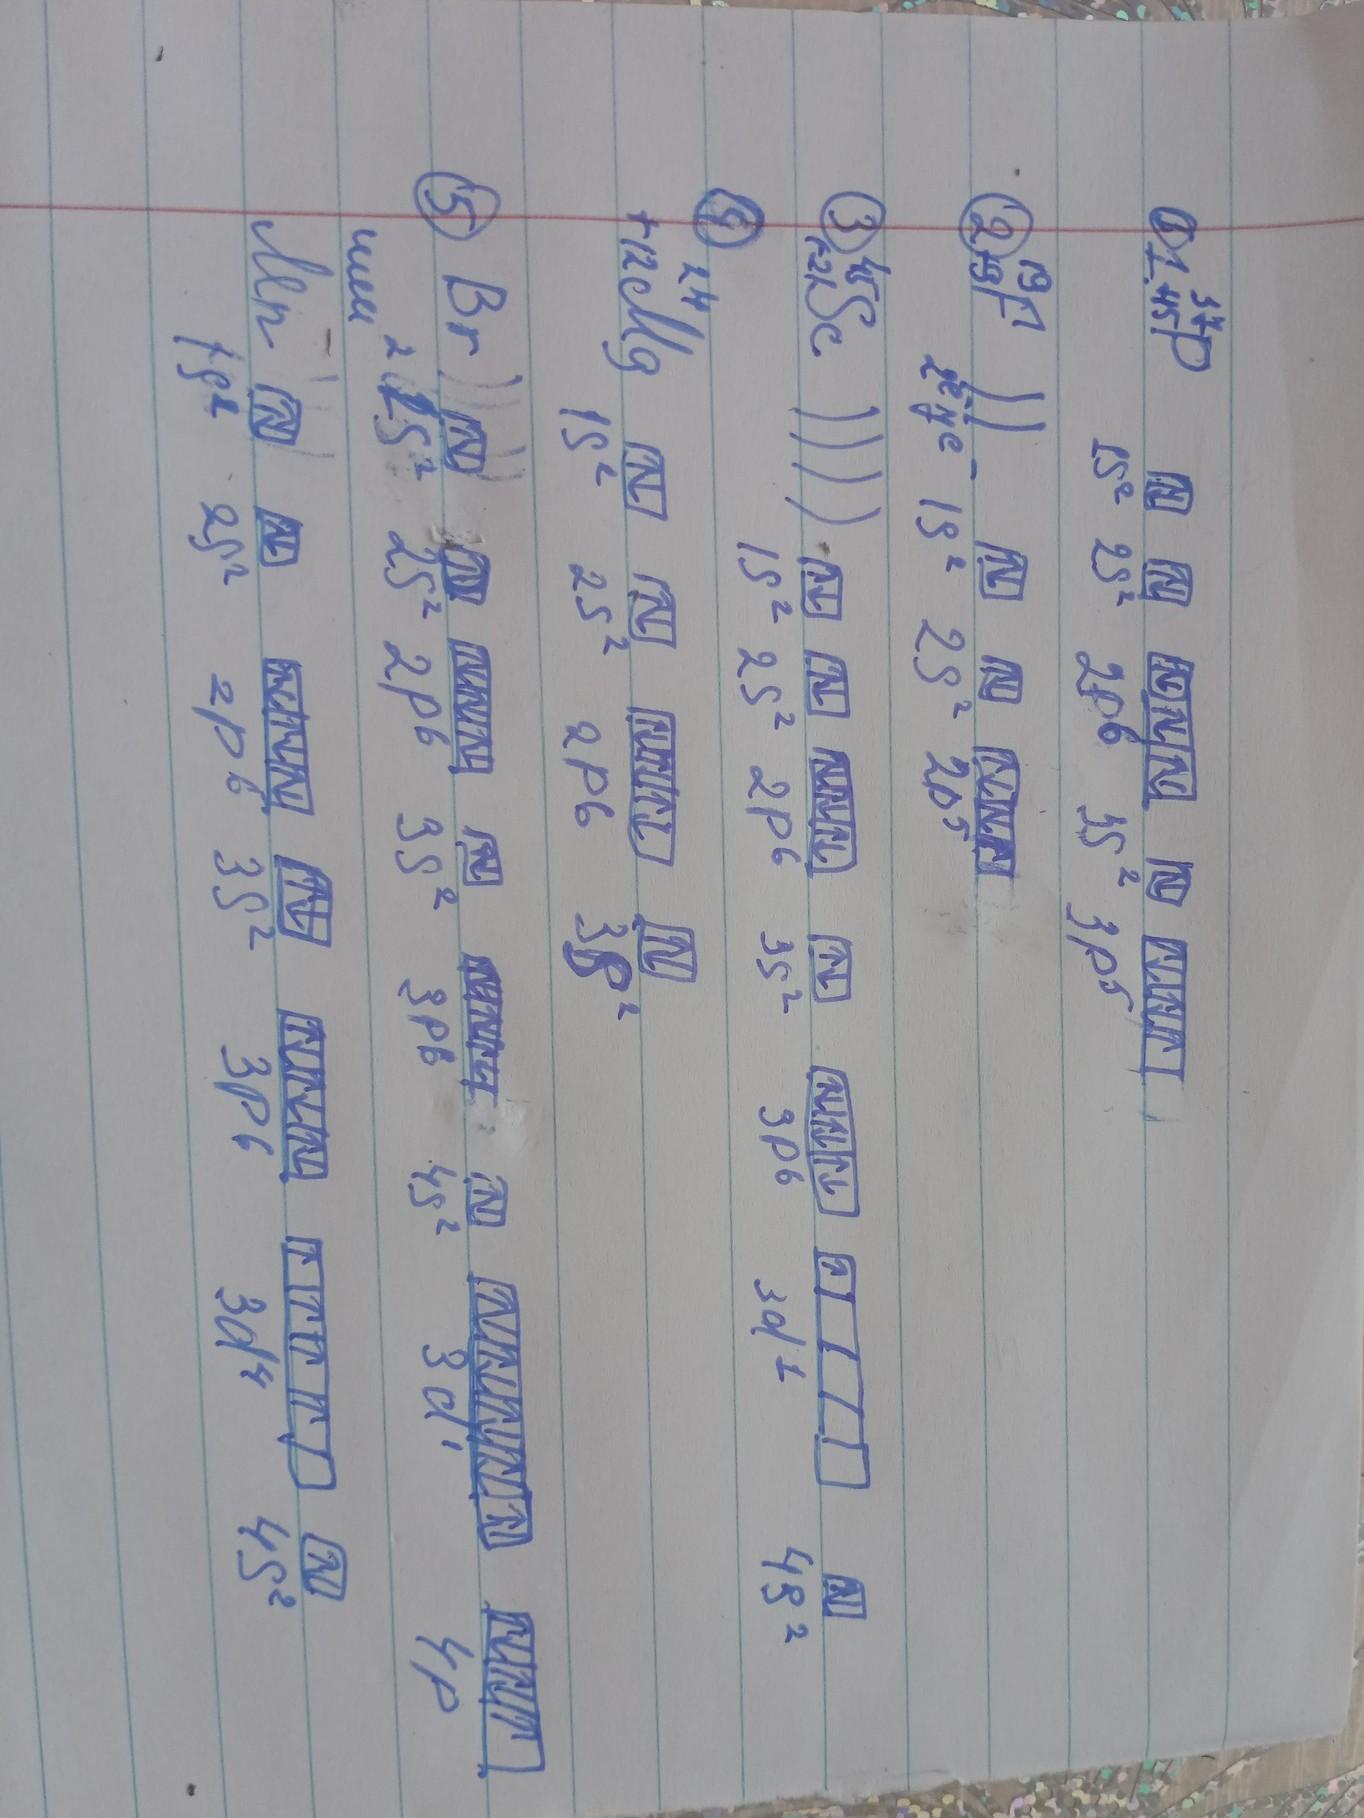 1. 37
45P
1s² 2s² 2p6 3s² 3p5
② 19
+9F
2ē 7e⁻ 1s² 2s² 2p5
③ 45
+21Sc
1s² 2s² 2p6 3s² 3p6 3d1 4s²
④
24
+12Mg
1s² 2s² 2p6 3p²
⑤ Br
1s² 2s² 2p6 3s² 3p6 4s² 3d¹ 4p
или
Mn
1s² 2s² 2p6 3s² 3p6 3d4 4s²